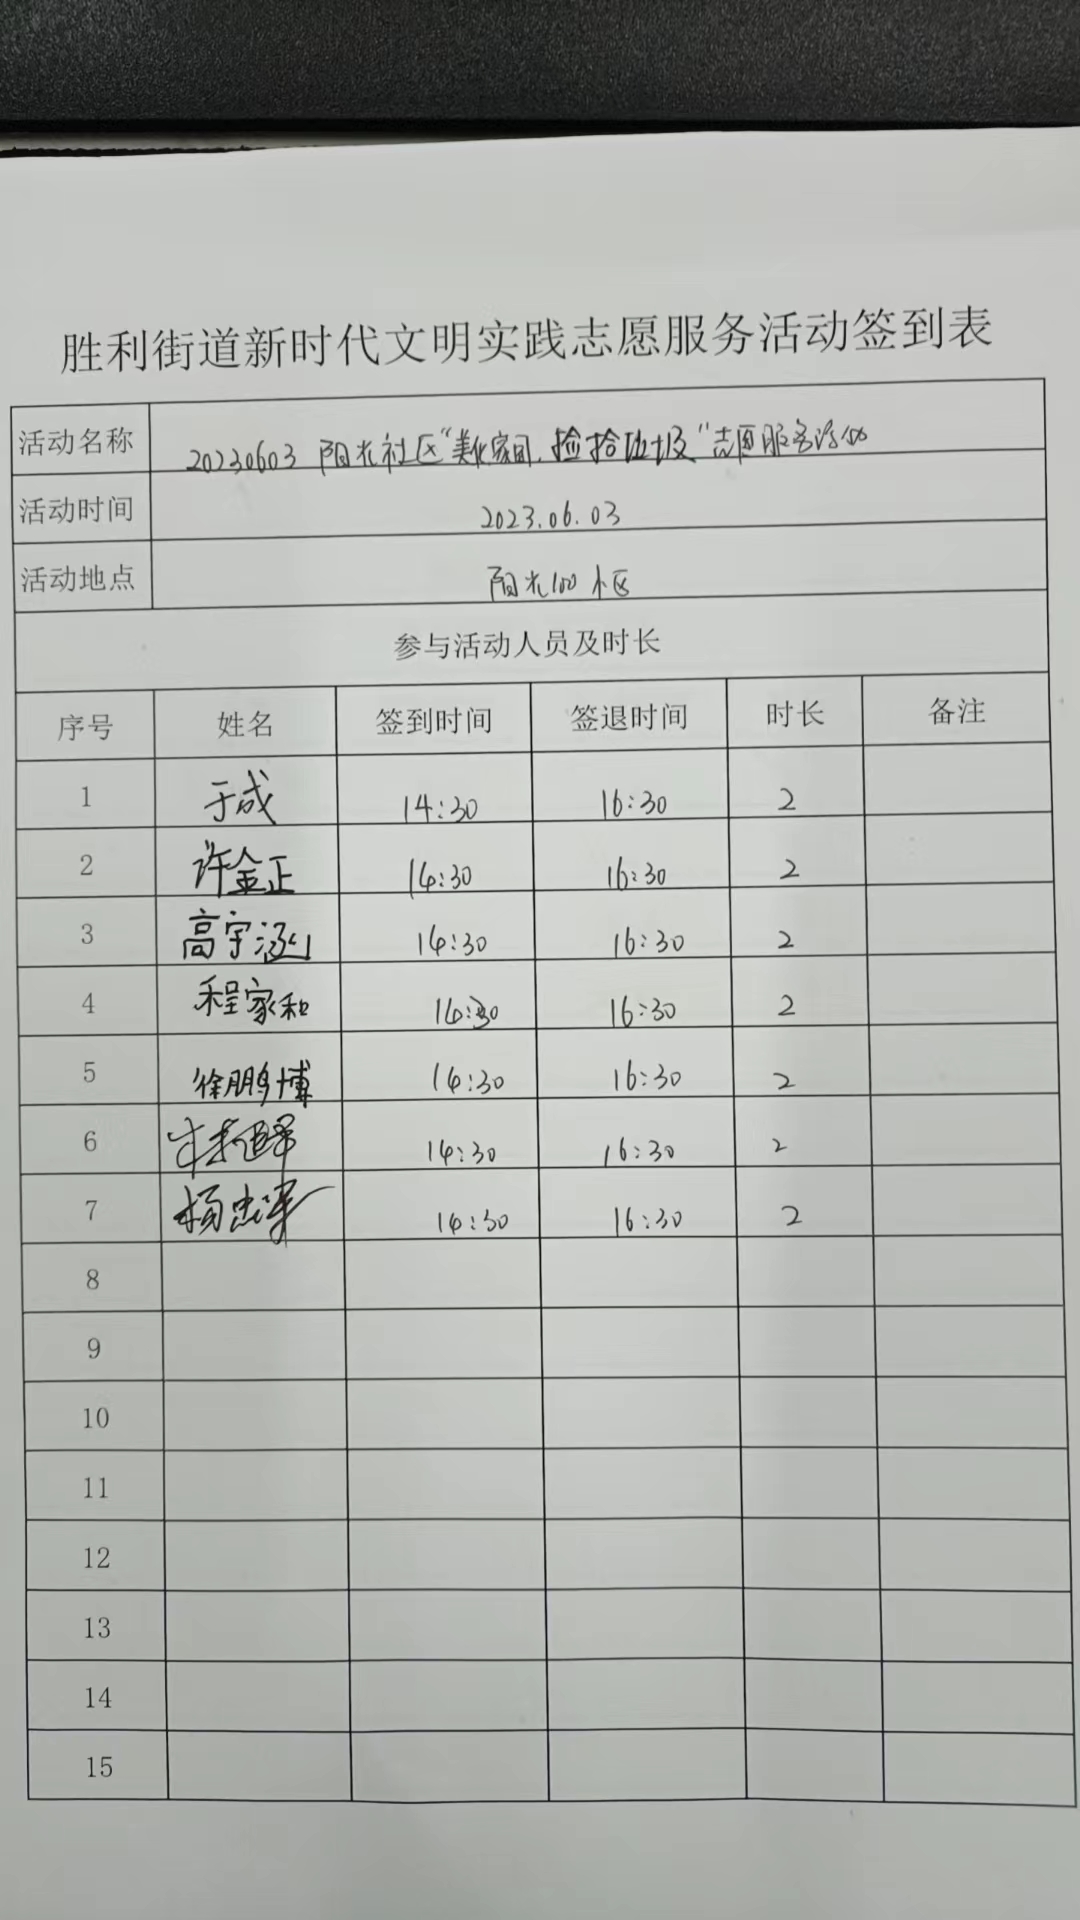 胜利街道新时代文明实践志愿服务活动签到表
活动名称 20230603 阳光社区“美化家园，捡拾垃圾”志愿服务活动
活动时间 2023.06.03
活动地点 阳光100小区
参与活动人员及时长
序号 姓名 签到时间 签退时间 时长 备注
1 于成 14:30 16:30 2
2 许金正 14:30 16:30 2
3 高宇涵 14:30 16:30 2
4 程家和 14:30 16:30 2
5 徐鹏博 14:30 16:30 2
6 14:30 16:30 2
7 14:30 16:30 2
8
9
10
11
12
13
14
15